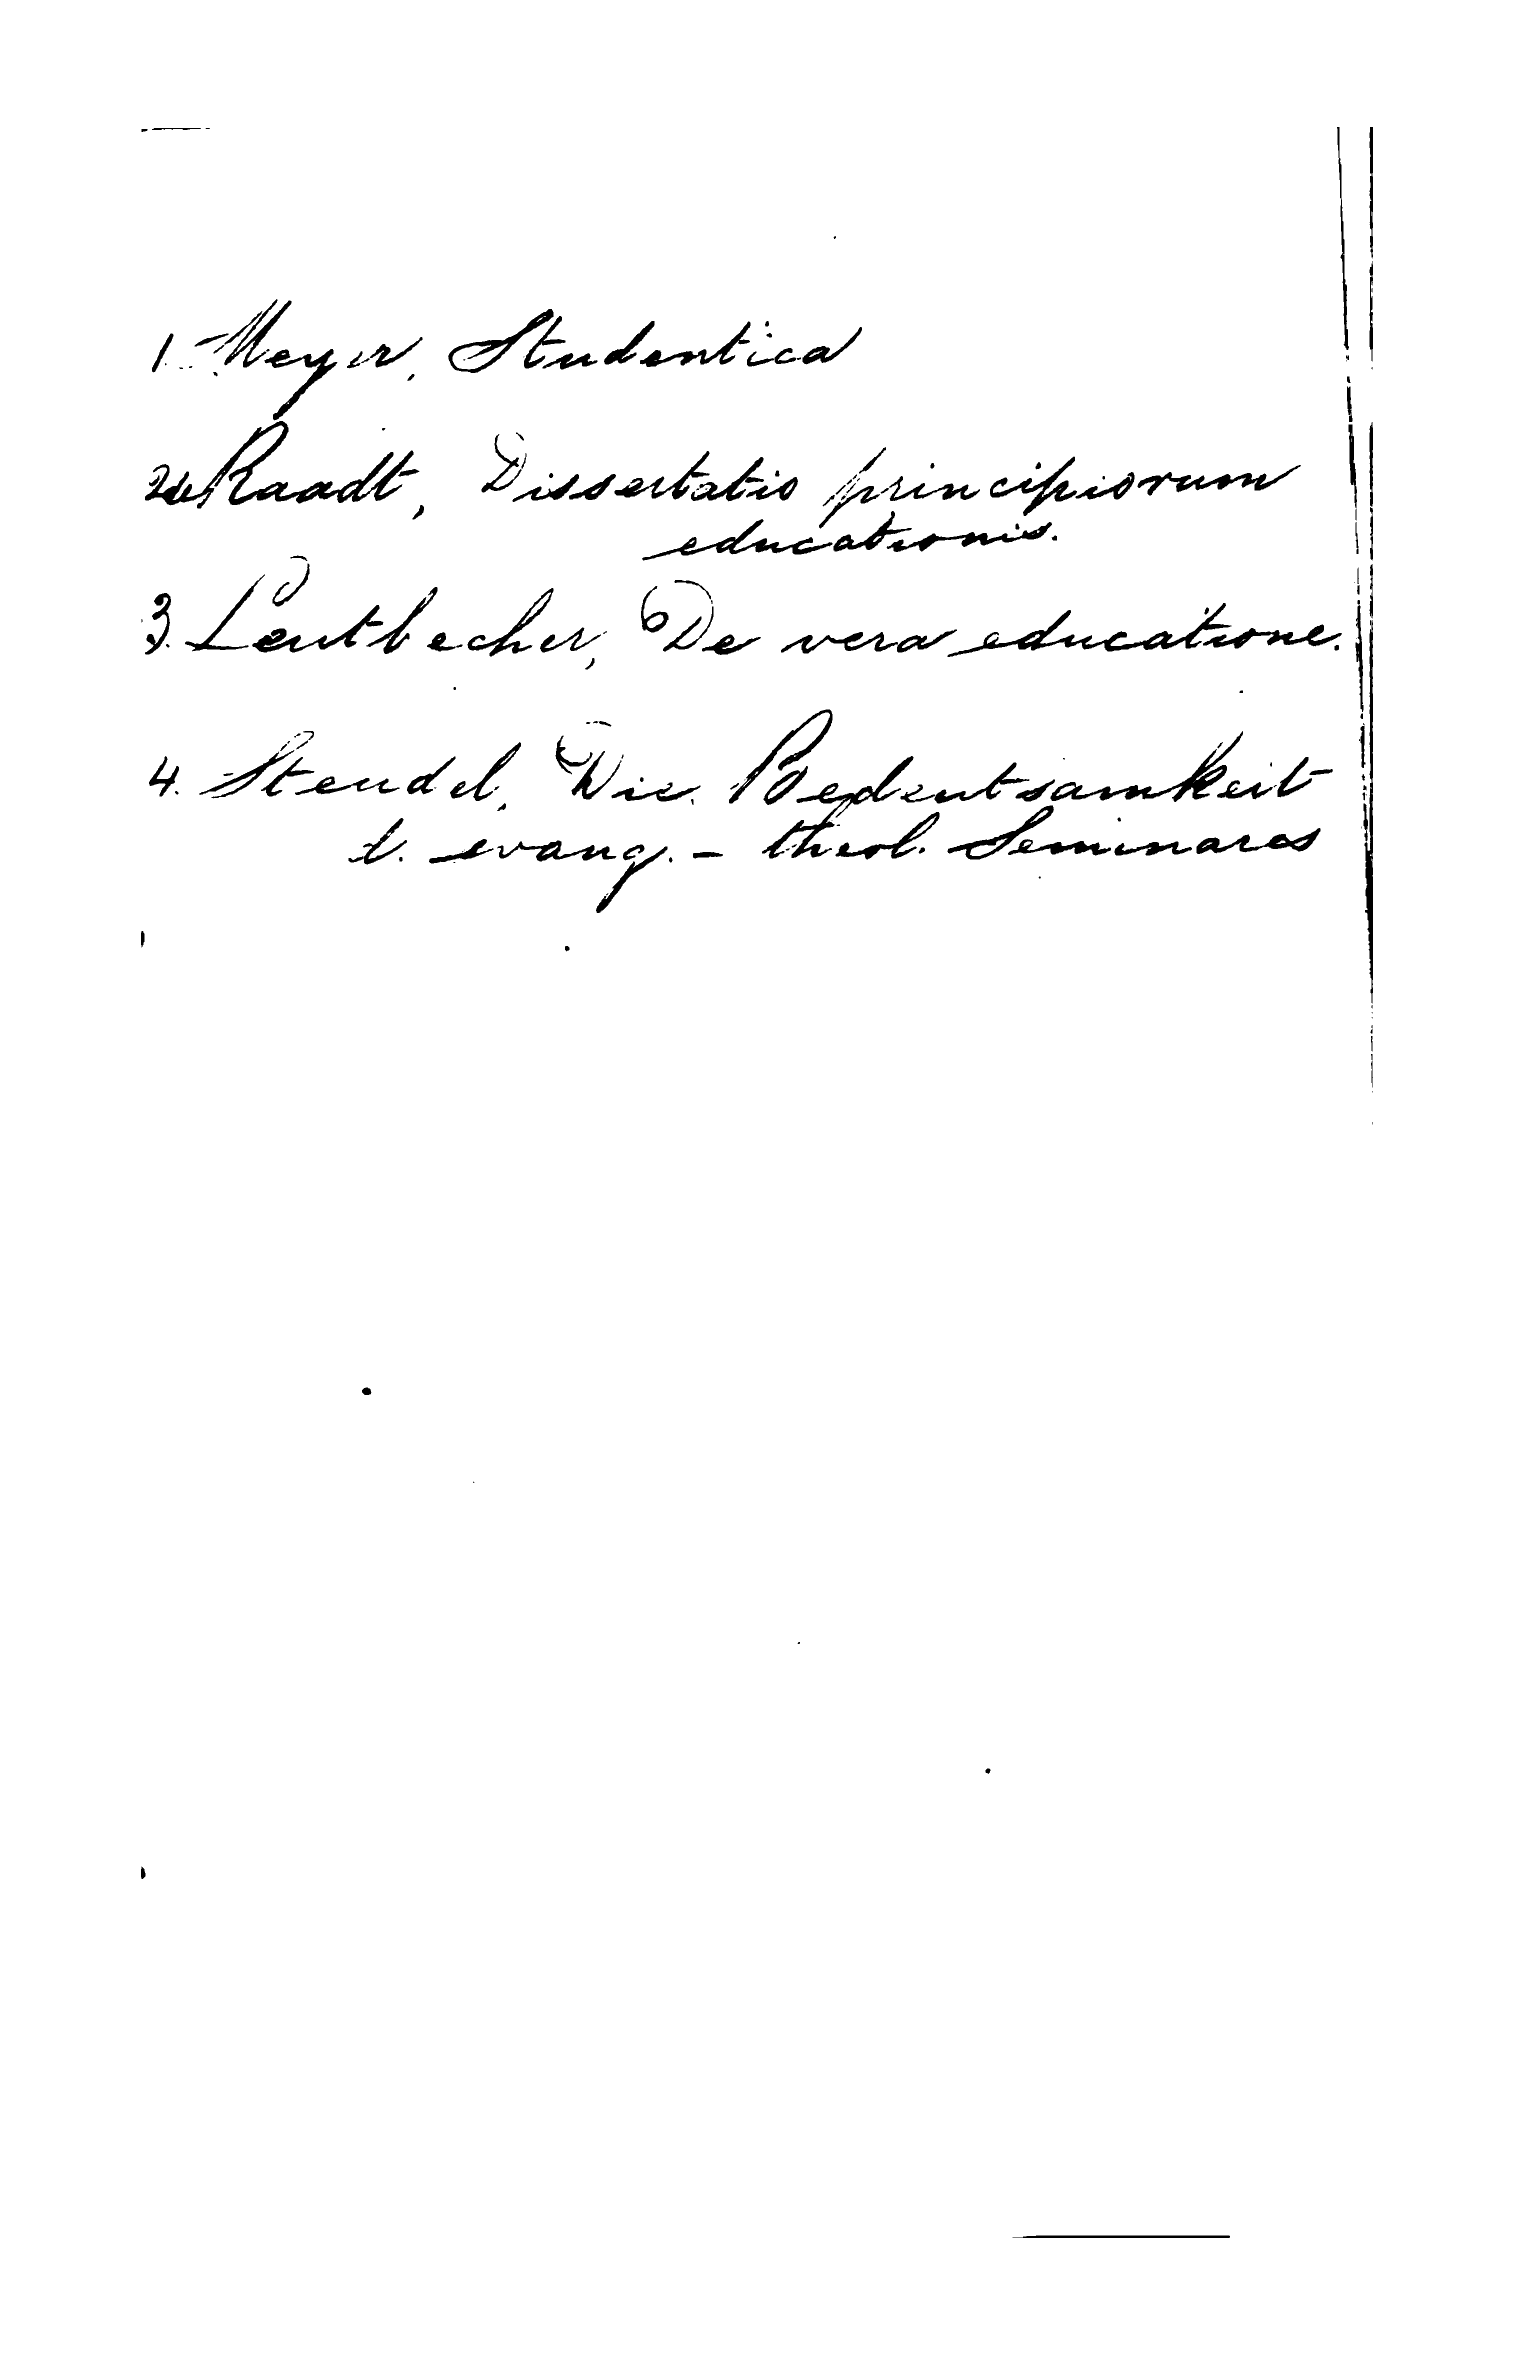 1. Meyer, Studentica
2. de Raadt, Dissertatio principiorum
educationis.
3. Leutbecher, De vera educatione.
4. Steudel, Die Bedeutsamkeit
d. evang. - theol. Seminares